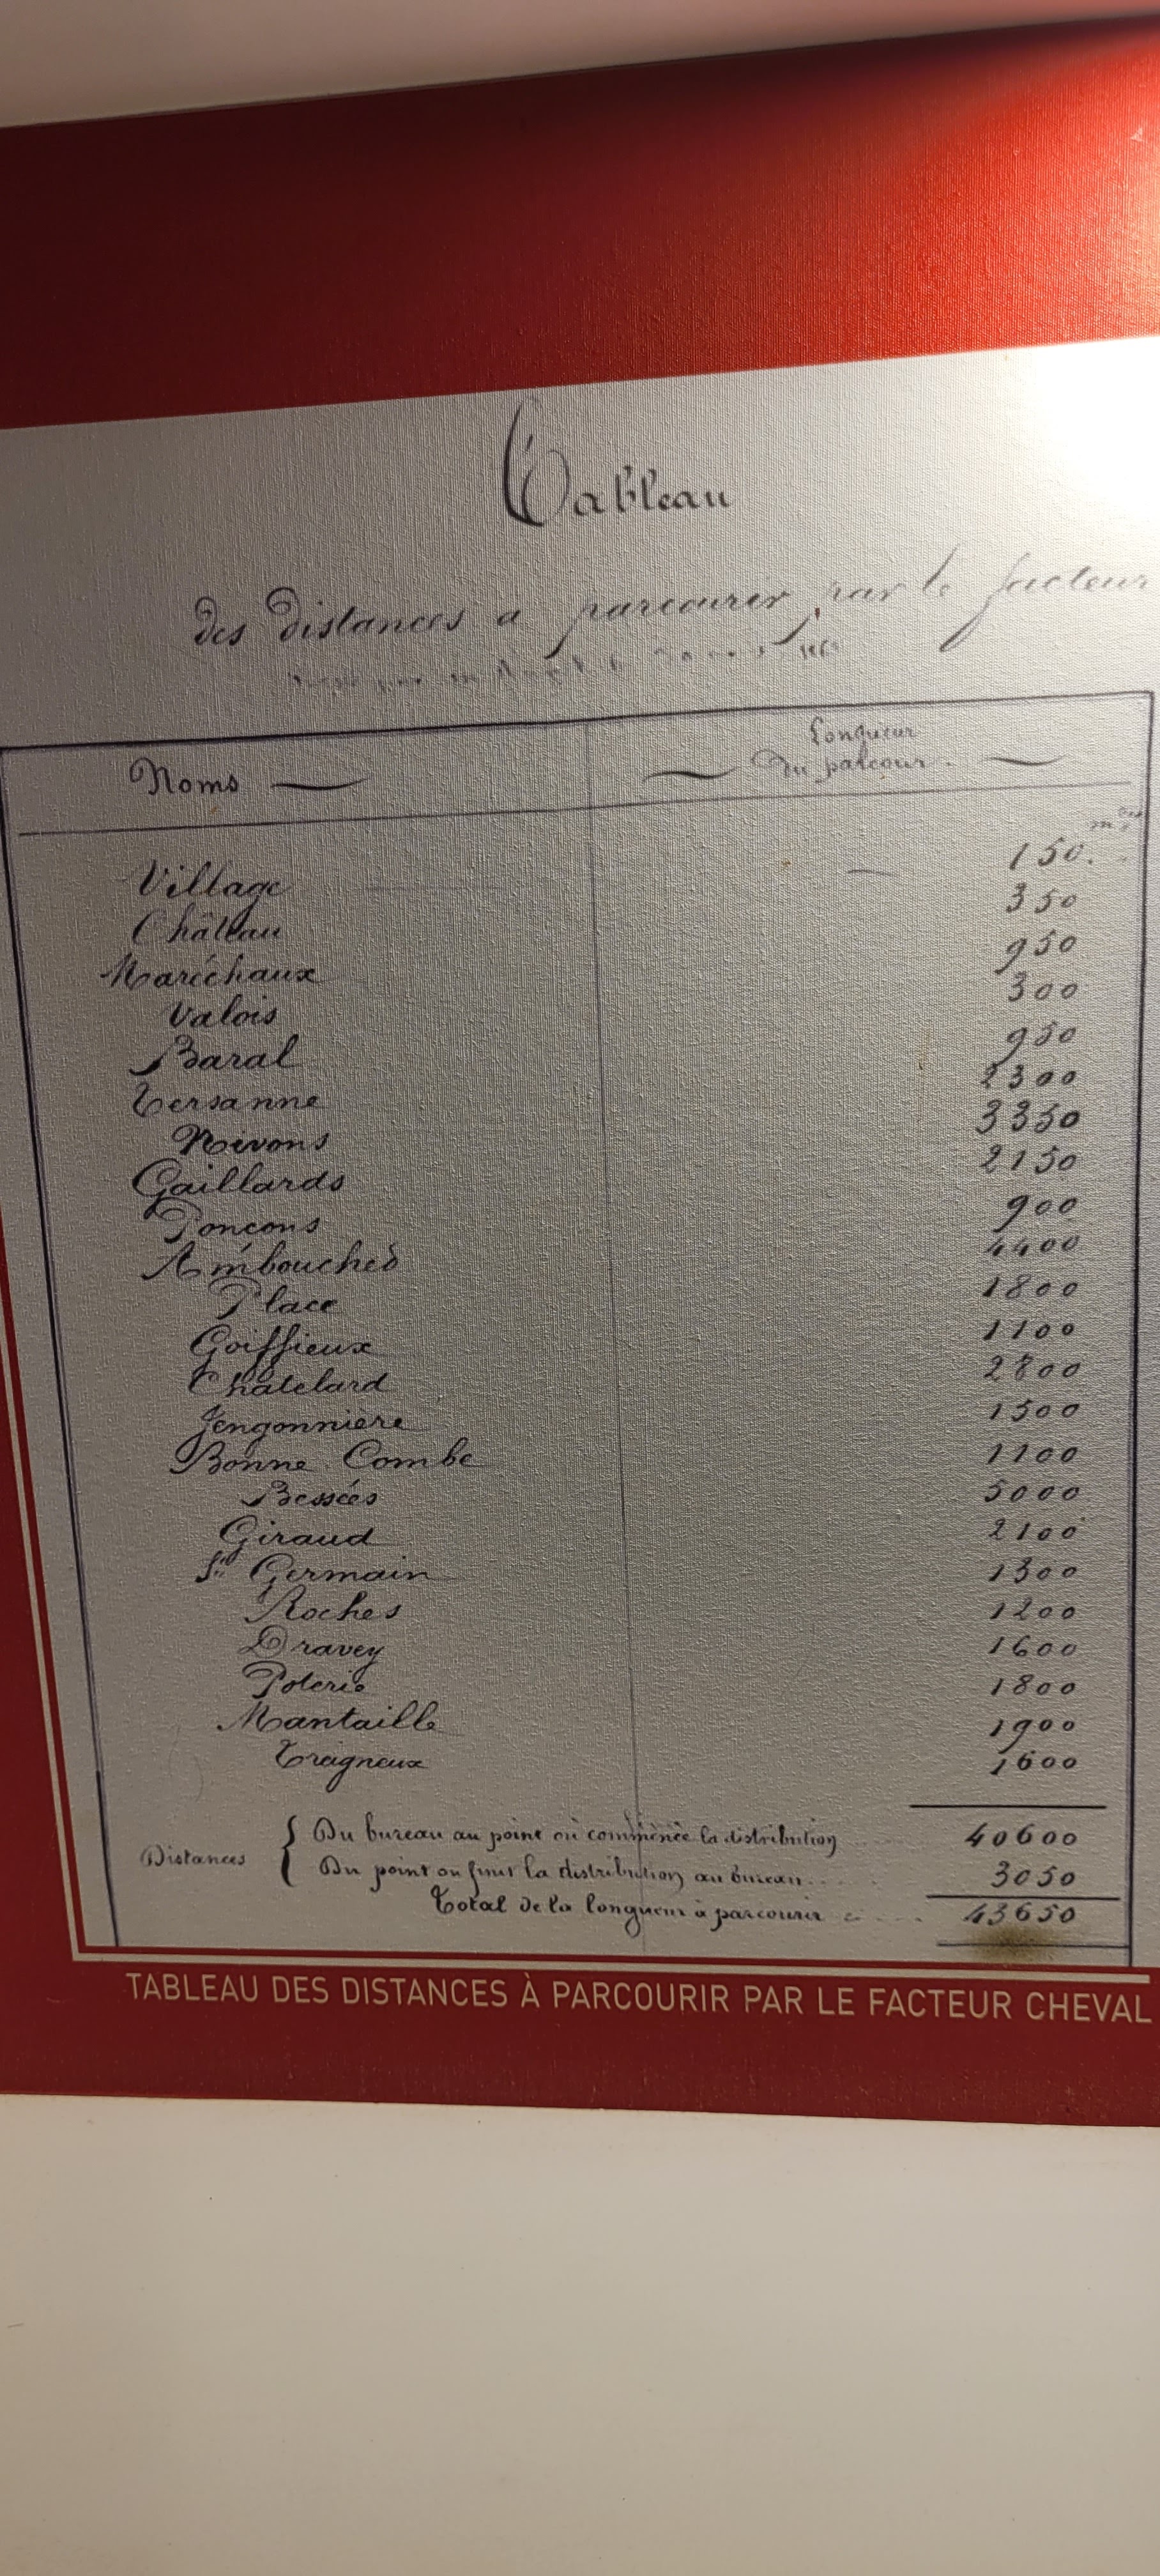 Tableau
des distances a parcourir par le facteur
Noms
Longueur
du parcour.
Village 150.
Château 350
Maréchaux 950
Valois 300
Baral 950
Tersanne 2300
Nivons 3350
Gaillards 2150
Ponçons 900
Ambouches 4400
Place 1800
Goiffieux 1100
Châtelard 2800
Jengonnière 1500
Bonne Combe 1100
Bessées 5000
Giraud 2100
St Germain 1300
Roches 1200
Dravey 1600
Poterie 1800
Mantaille 1900
Treigneux 1600
Distances { Du bureau au point où commence la distribution 40600
Du point ou finit la distribution au bureau.... 3050
Total de la longueur à parcourir .... 43650
TABLEAU DES DISTANCES À PARCOURIR PAR LE FACTEUR CHEVAL